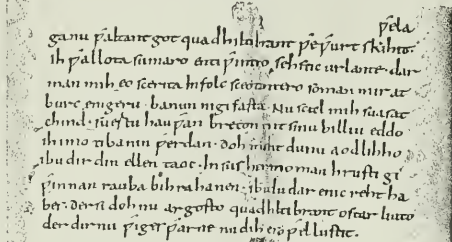 ƿela
ganu ƿaltant got quad hiltibrant ƿeƿurt skihit
ih ƿallota sumaro enti ƿintro sehstic urlante · dar
man mih eo scerita infolc sceotantero soman mir at
burc enigeru · banun nigifasta · Nu scal mih suasat
chind · suertu hauƿan breton mit sinu billiu eddo
ih imo tibanin ƿerdan · doh maht du nu aodlihho ·
ibu dir din ellen taoc · In sus heremo man hrusti gi
ƿinnan rauba bihrahanen · ibu du dar enic reht ha
bes · der si doh nu argosto quad hiltibrant ostar liuto
der dir nu ƿiges ƿarne nu dih es so ƿel lustit ·